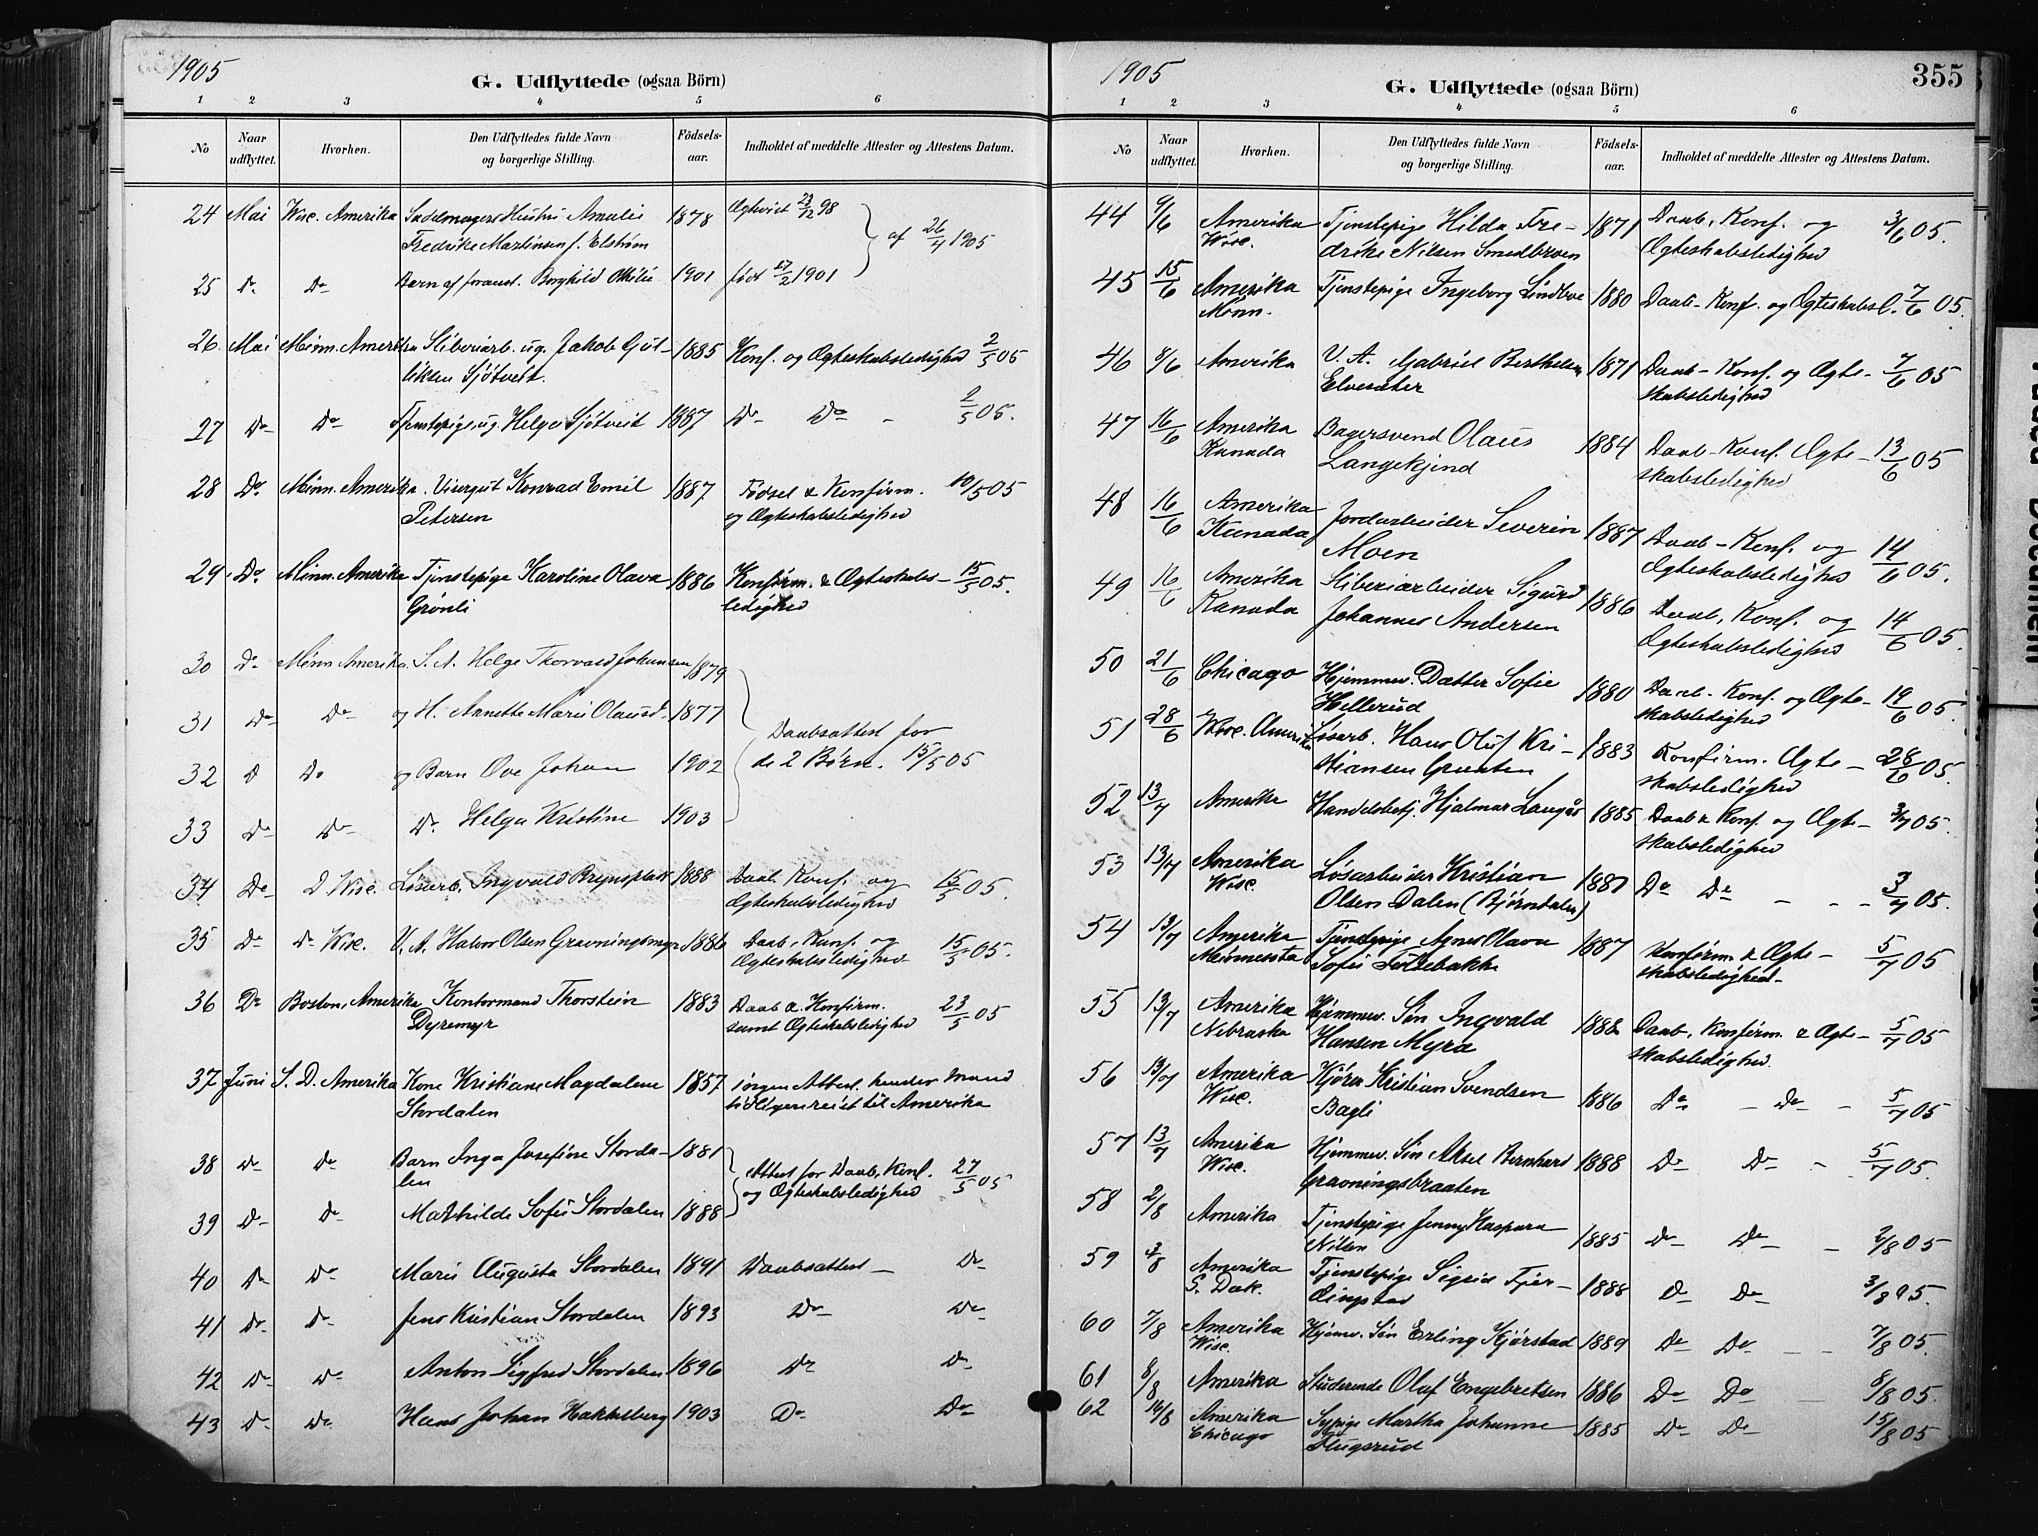 1905
G. Udflyttede (ogsaa Börn)
1 2 3 4 5 6
No
Naar udflyttet.
Hvorhen.
Den Udflyttedes fulde Navn og borgerlige Stilling.
Födsels-aar.
Indholdet af meddelte Attester og Attestens Datum.
24 Mai Wisc. Amerika Sadelmagers Hustru Amalie 1878 Ægteviet 23/12 98
Fredrike Martinsen f. Elstrøm af 26/4 1905
25 Do Do Barn af foranst. Borghild Othilie 1901 født 17/2 1901
26 Mai Minn. Amerika Sliberiarb. ug. Jakob Gul- 1885 Konf. og Ægteskabsledighed 2/5 05
liksen Sjøtveit.
27 Do Do Tjenstepige ug. Helga Sjøtveit 1887 Do Do - 2/5 05.
28 Do Minn. Amerika. Visergut Konrad Emil 1887 Fødsel & Konfirm. 10/5 05
Petersen og Ægteskabsledighed
29 Do Minn. Amerika Tjenstepige Karoline Olava 1886 Konfirm. & Ægteskabs- 15/5 05.
Grønli ledighed
30 Do Minn Amerika. S. A. Helge Thorvald Johansen 1879
31 Do Do og H. Annette Marie Olausd. 1877 Daabsattest for
32 D Do og Barn Ove Johan 1902 de 2 Børn. 15/5 05
33 Do Do Do Helga Kristine 1903
34 Do D Wisc. Løsarb. Ingvald Brynsplass 1888 Daab. Konf. og 15/5 05.
Ægteskabsledighed
35 Do Do Wisc. U. A. Halvor Olsen Gravningsmyr 1886 Daab, Konf. og 15/5 05.
Ægteskabsledighed
36 Do Boston, Amerika Kontormand Thorstein 1883 Daab & Konfirm. 23/5 05
Dyremyr samt Ægteskabsledighed
37 Juni S. D. Amerika Kone Kristiane Magdalene 1857 ingen Attest. hendes Mand
Stordalen tidligere reist til Amerika
38 Do Do Barn Inga Josefine Storda- 1881 Attest for Daab, Konf. 27/5 05
len og Ægteskabsledighed
39 Do Do Mathilde Sofie Stordalen 1888
40 Do Do Marie Augusta Stordalen 1891 Daabsattest - Do
41 Do Do Jens Kristian Stordalen 1893 Do Do
42 Do Do Anton Sigfred Stordalen 1896 Do Do
43 Do Do Hans Johan Hakkeberg 1903 Do Do
1905
355
G. Udflyttede (ogsaa Börn)
1 2 3 4 5 6
No
Naar udflyttet.
Hvorhen.
Den Udflyttedes fulde Navn og borgerlige Stilling.
Födsels-aar.
Indholdet af meddelte Attester og Attestens Datum.
44 9/6 Amerika Tjenstepige Hilda Fre- 1871 Daab, Konf. og 3/6 05.
Wisc. drike Nilsen Smedbroen Ægteskabsledighed
45 15/6 Amerika Tjenstepige Ingeborg Lindboe 1880 Daab- Konf. og Ægteskabsl. 7/6 05.
Minn.
46 8/6 Amerika U. A. Gabriel Berthelsen 1871 Daab- Konf. og Ægte- 7/6 05
Elvesæter skabsledighed
47 16/6 Amerika Bagersvend Olaus 1884 Daab- Konf. Ægte- 13/6 05
Kanada Langekjend skabsledighed
48 16/6 Amerika Jordarbeider Severin 1887 Daab- Konf. og 14/6 05.
Kanada Moen Ægteskabsledighed
49 16/6 Amerika Sliberiarbeider Sigurd 1886 Daab, Konf. og 14/6 05.
Kanada Johannes Andersen Ægteskabsledighed
50 21/6 Chicago Hjemmev. Datter Sofie 1880 Daab- Konf. og Ægte- 19/6 05.
Hellerud skabsledighed
51 28/6 Wisc. Amerika Løsarb. Hans Oluf Kri- 1883 Konfirm. Ægte- 28/6 05.
stiansen skabsledighed
52 13/7 Amerika Handelsbetj. Hjalmar Langås 1885 Daab & Konf. og Ægte- 3/7 05.
skabsledighed
53 13/7 Amerika Løsarbeider Kristian 1887 Do Do - - - 3/7 05.
Wisc. Olsen Dalen (Bjørndalen)
54 13/7 Amerika Tjenstepige Agnes Olava 1887 Konfirm. & Ægte- 5/7 05
Minnesota Sofie skabsledighed.
55 13/7 Amerika Hjemmev. Søn Ingvald 1888 Daab, Konfirm. & Ægte- 5/7 05
Nebraska Hansen Myra skabsledighed.
56 13/7 Amerika Kjører Kristian Svendsen 1886 Do - Do - 5/7 05
Wisc. Bagli
57 13/7 Amerika Hjemmev. Søn Aksel Bernhard 1888 Do Do - 5/7 05.
Wisc. Gravningsbraaten
58 2/8 Amerika Tjenstepige Jenny Kaspara 1885 Do Do - 2/8 05
Nilsen
59 3/8 Amerika Tjenstepige Sigrid Fjær- 1888 D Do 3/8 05.
S. Dak. lingstad
60 7/8 Amerika Hjemv. Søn Erling Kjørstad 1889 Do Do - - 7/8 05.
Wisc.
61 8/8 Amerika Studerende Olaf Engebretsen 1886 Do Do - - 8/8 05.
62 16/8 Amerika Sypige Martha Johanne 1885 Do Do 15/8 05
Chicago Flugsrud